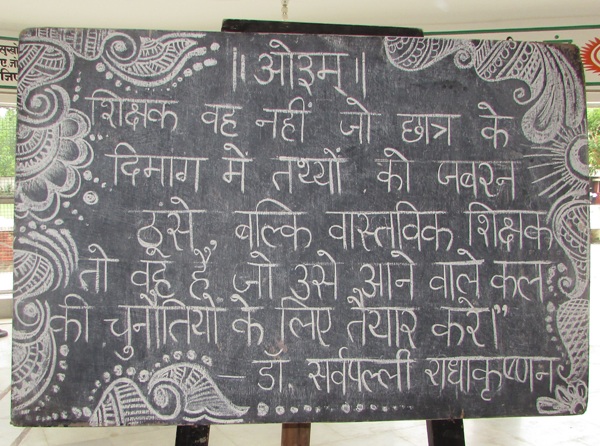 ॥ ओ३म् ॥
शिक्षक वह नहीं जो छात्र के
दिमाग में तथ्यों को जबरन
ठूंसे, बल्कि वास्तविक शिक्षक
तो वह हैं, जो उसे आने वाले कल
की चुनौतियों के लिए तैयार करें।"
- डॉ. सर्वपल्ली राधाकृष्णन